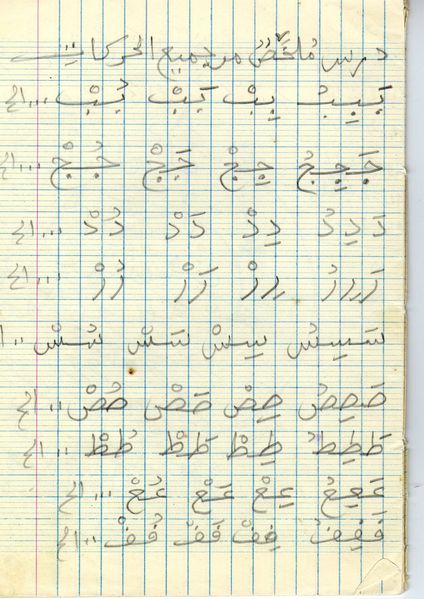 درس مُلَخَّصٌ من جميع الحركات
بَبِبُ بِبْ بَبْ بُبْ ... الخ
جَجِجُ جِجْ جَجْ جُجْ ... الخ
دَدِدُ دِدْ دَدْ دُدْ ... الخ
رَرِرُ رِرْ رَرْ رُرْ ... الخ
سَسِسُ سِسْ سَسْ سُسْ ... ا
صَصِصُ صِصْ صَصْ صُصْ ... الخ
طَطِطُ طِطْ طَطْ طُطْ ... الخ
عَعِعُ عِعْ عَعْ عُعْ ... الخ
فَفِفُ فِفْ فَفْ فُفْ ... الخ